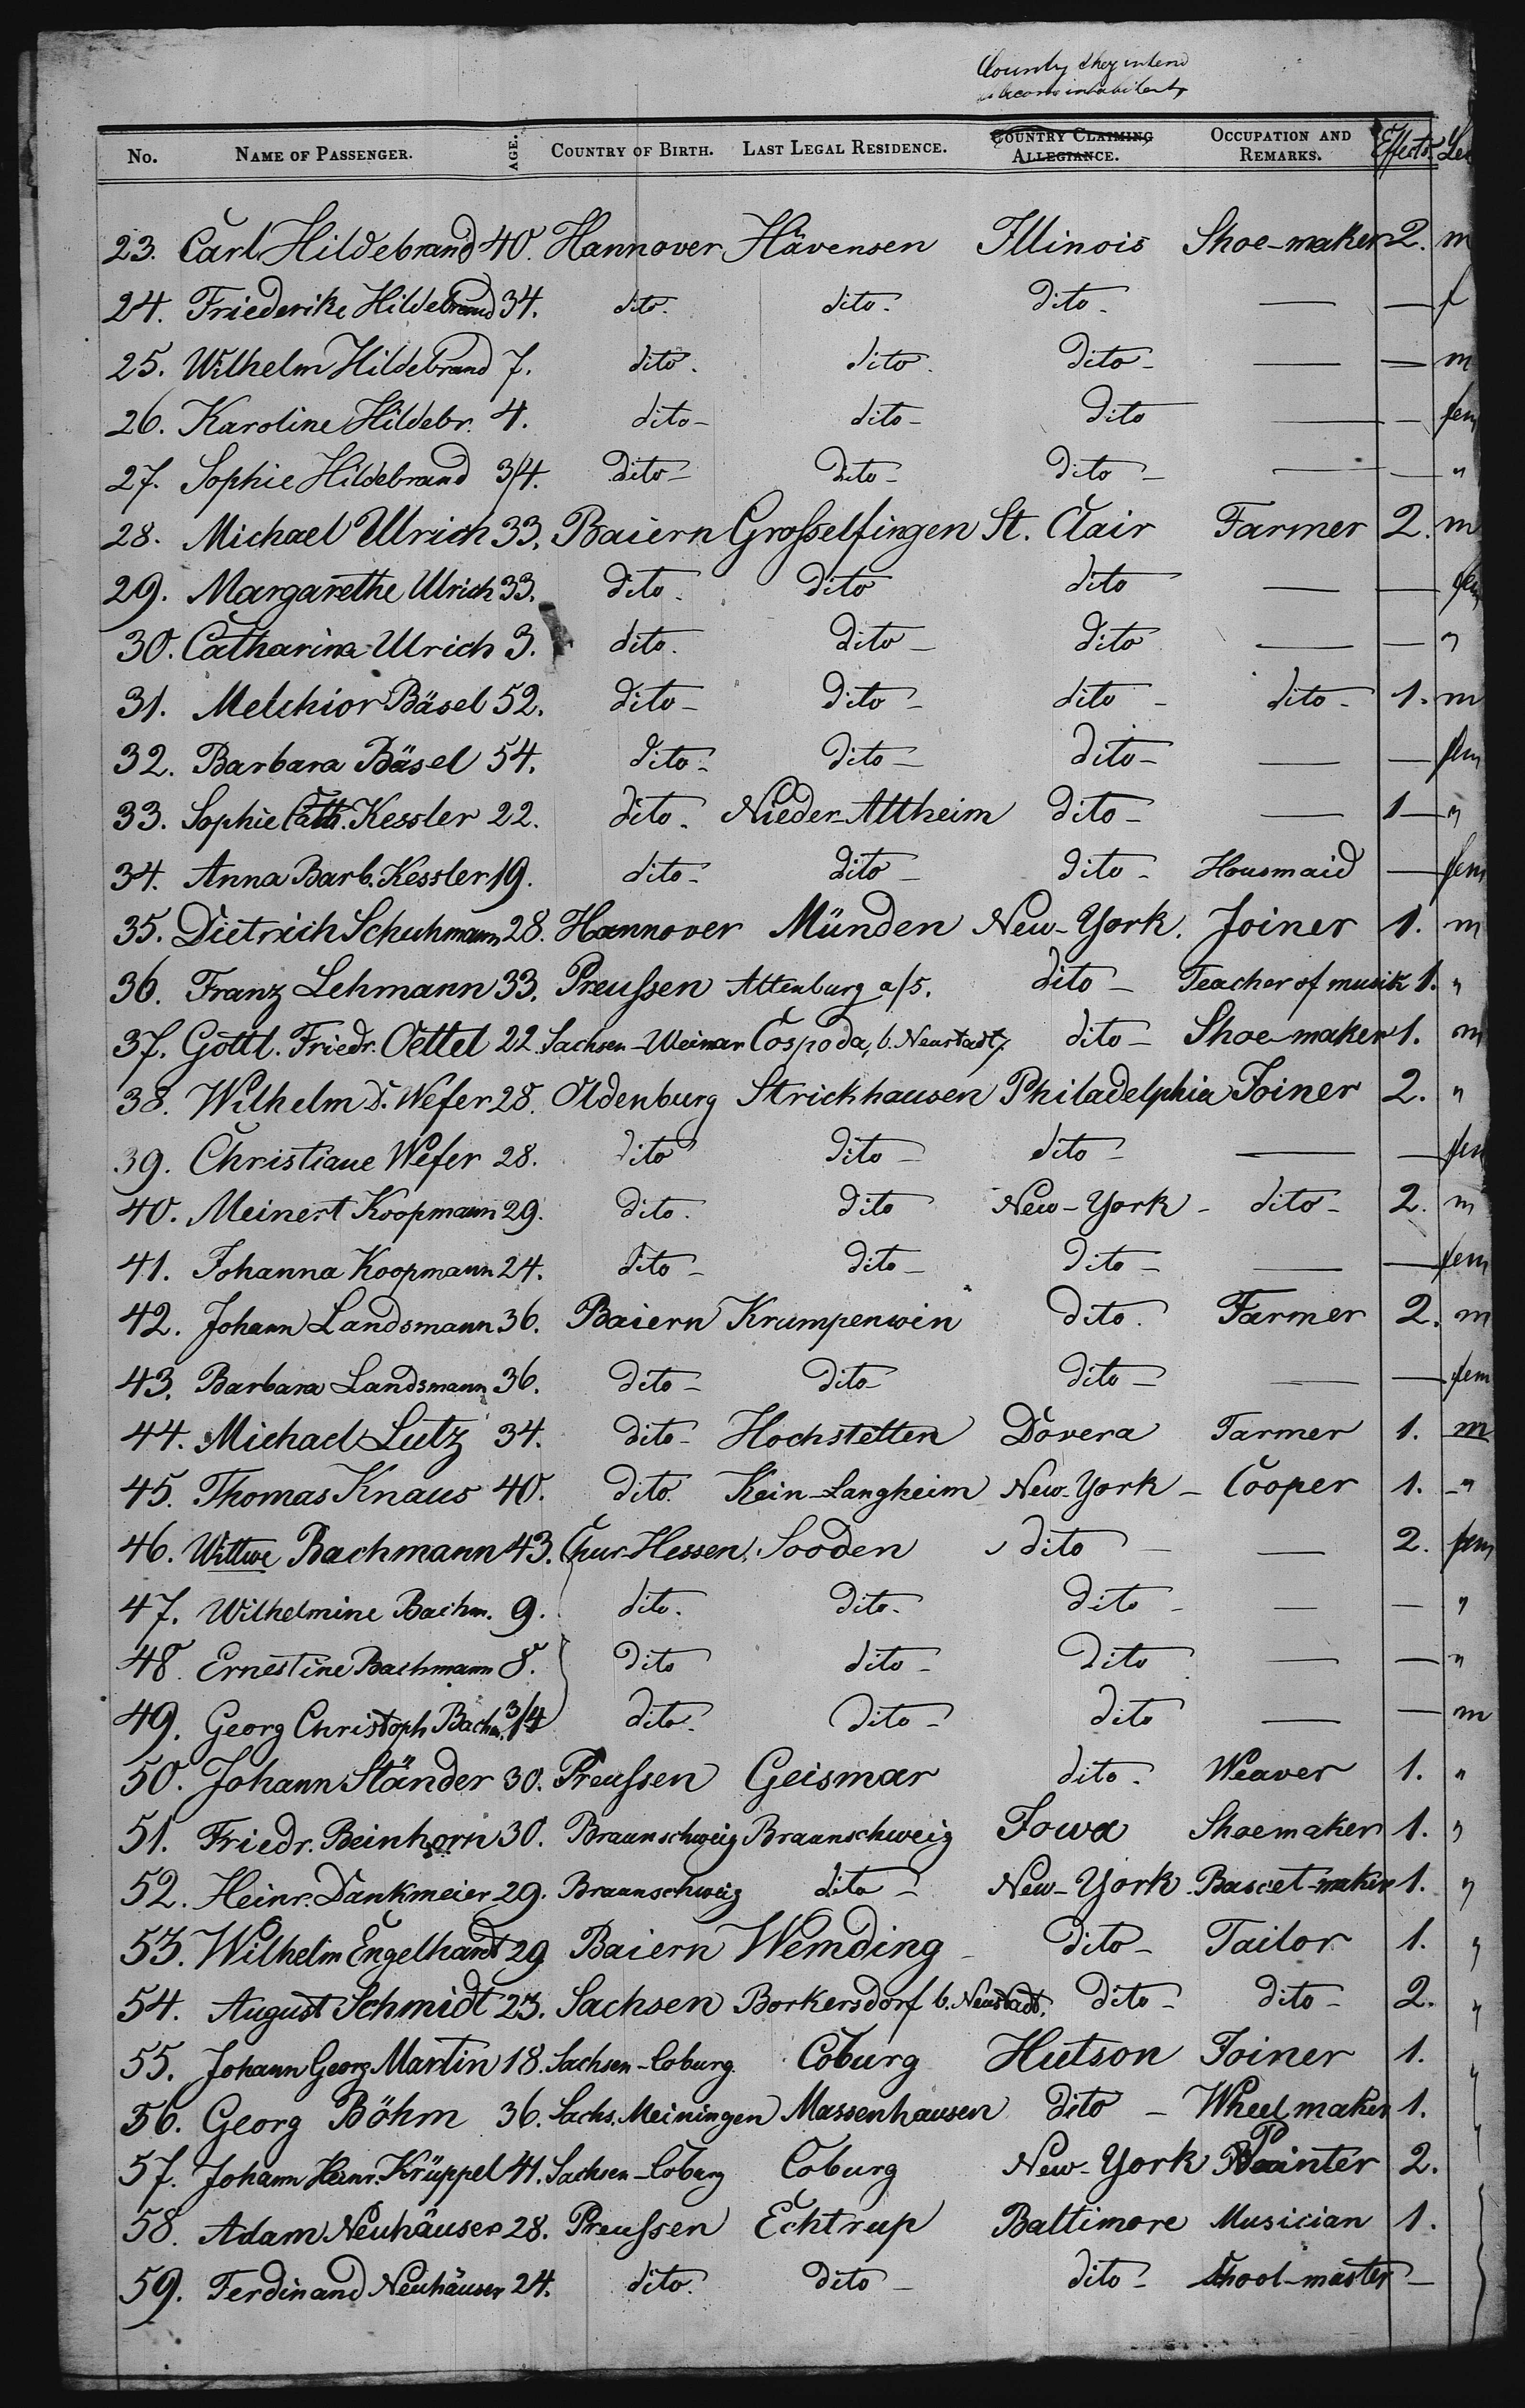 County they intend
to become inhabitants
No. NAME OF PASSENGER. AGE. COUNTRY OF BIRTH. LAST LEGAL RESIDENCE. COUNTRY CLAIMING ALLEGIANCE. OCCUPATION AND REMARKS. Effects
23. Carl Hildebrand 40. Hannover Hävensen Illinois Shoe-maker 2. m
24. Friederike Hildebrand 34. dito. dito. dito. — — f
25. Wilhelm Hildebrand 7. dito. dito. dito — — m
26. Karoline Hildebr. 4. dito — dito — dito — — fem
27. Sophie Hildebrand 3/4. dito — dito — dito — — — "
28. Michael Ulrich 33. Baiern Grosselfingen St. Clair Farmer 2. m
29. Margarethe Ulrich 33. dito. dito dito — — fem
30. Catharina Ulrich 3. dito. dito — dito — — "
31. Melchior Bäsel 52. dito — dito — dito — dito — 1. m
32. Barbara Bäsel 54. dito — dito — dito — — — fem
33. Sophie Cath. Kessler 22. dito. Nieder-Altheim dito — — 1 — "
34. Anna Barb. Kessler 19. dito — dito — dito — Housmaid — fem
35. Dietrich Schuhmann 28. Hannover Münden New-York. Joiner 1. m
36. Franz Lehmann 33. Preussen Altenburg a/s. dito — Teacher of musik 1. "
37. Gottl. Friedr. Oettel 22. Sachsen-Weimar Cospoda, b. Neustadt. dito — Shoe-maker 1. m
38. Wilhelm D. Wefer 28. Oldenburg Strickhausen Philadelphia Joiner 2. "
39. Christiane Wefer 28. dito dito — dito — — — fem
40. Meinert Koopmann 29. dito. dito New-York — dito — 2. m
41. Johanna Koopmann 24. dito — dito — dito — — — fem
42. Johann Landsmann 36. Baiern Krumpenwin dito. Farmer 2. m
43. Barbara Landsmann 36. dito — dito — dito — — — fem
44. Michael Lutz 34. dito — Hochstetten Dovera Farmer 1. m
45. Thomas Knaus 40. dito. Kein-Langheim New-York — Cooper 1. — "
46. Wittwe Bachmann 43. Chur-Hessen. Sooden dito — — 2. fem
47. Wilhelmine Bachm. 9. dito. dito. dito — — — "
48. Ernestine Bachmann 8. dito dito — dito — — "
49. Georg Christoph Bachm. 3/4 dito. dito — dito — — m
50. Johann Ständer 30. Preussen Geismar dito. Weaver 1. "
51. Friedr. Beinhorn 30. Braunschweig Braunschweig Iowa Shoemaker 1. "
52. Heinr. Dankmeier 29. Braunschweig dito — New-York Bascet-maker 1. "
53. Wilhelm Engelhardt 29 Baiern Wemding — dito — Tailor 1. "
54. August Schmidt 23. Sachsen Borkersdorf b. Neustadt. dito — dito — 2. "
55. Johann Georg Martin 18. Sachsen-Coburg. Coburg Hutson Joiner 1. "
56. Georg Böhm 36. Sachs. Meiningen Massenhausen dito — Wheel maker 1. "
57. Johann Heinr. Krüppel 41. Sachsen-Coburg Coburg New-York Painter 2. "
58. Adam Neuhäuser 28. Preussen Echtrup Baltimore Musician 1.
59. Ferdinand Neuhäuser 24. dito. dito — dito — School-master —